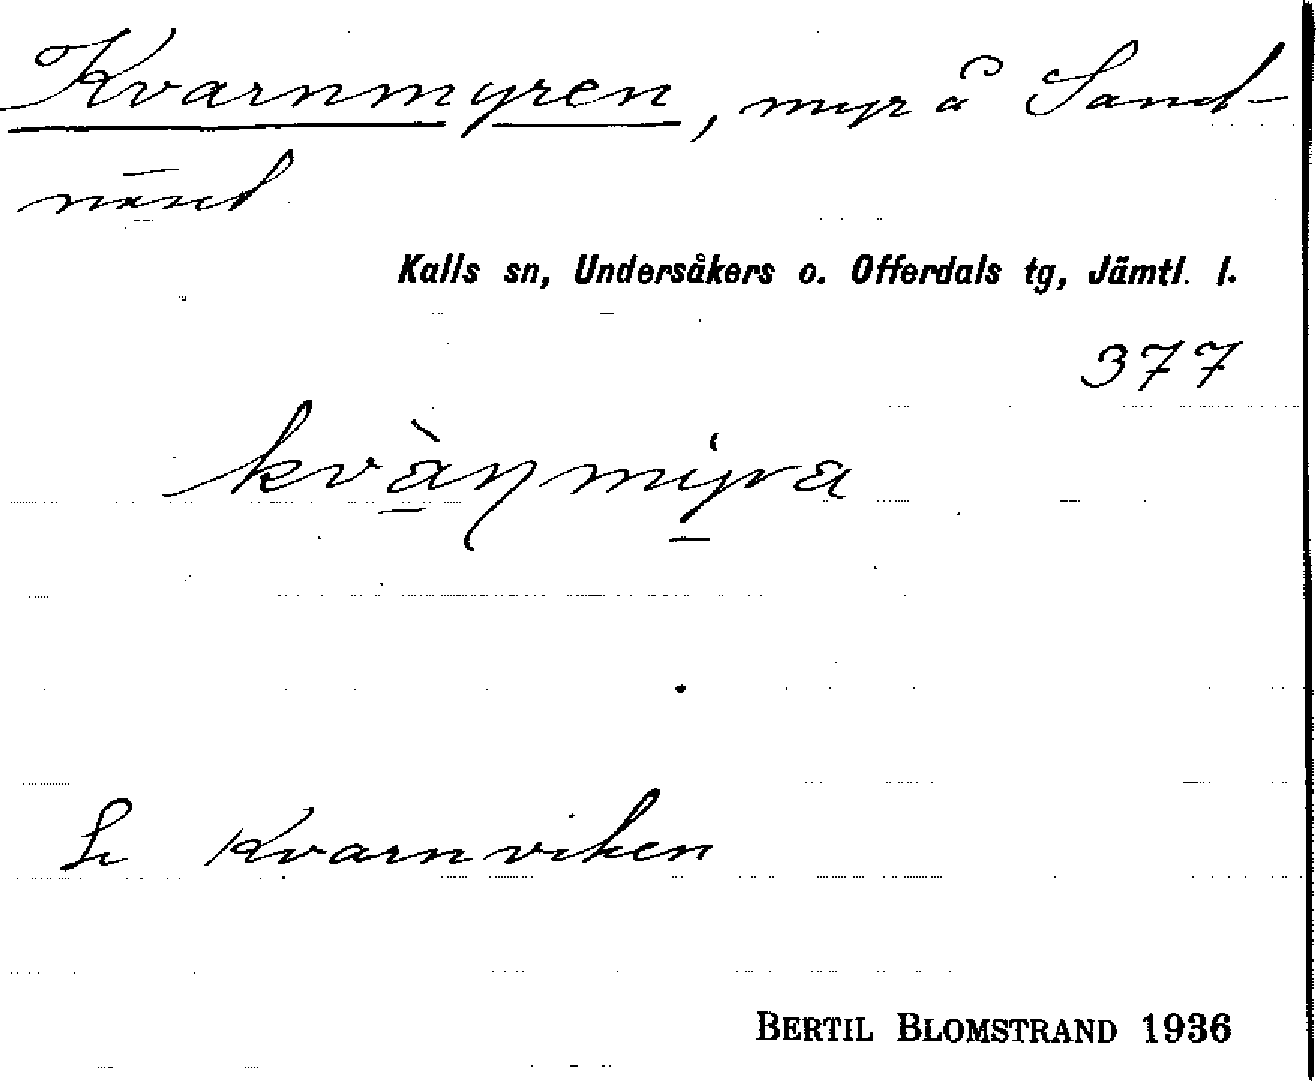 Kvarnmyren, myr å Sand-
näset
Kalls sn, Undersåkers o. Offerdals tg, Jämtl. l.
377
kvàṇmýra
Se Kvarnviken
BERTIL BLOMSTRAND 1936